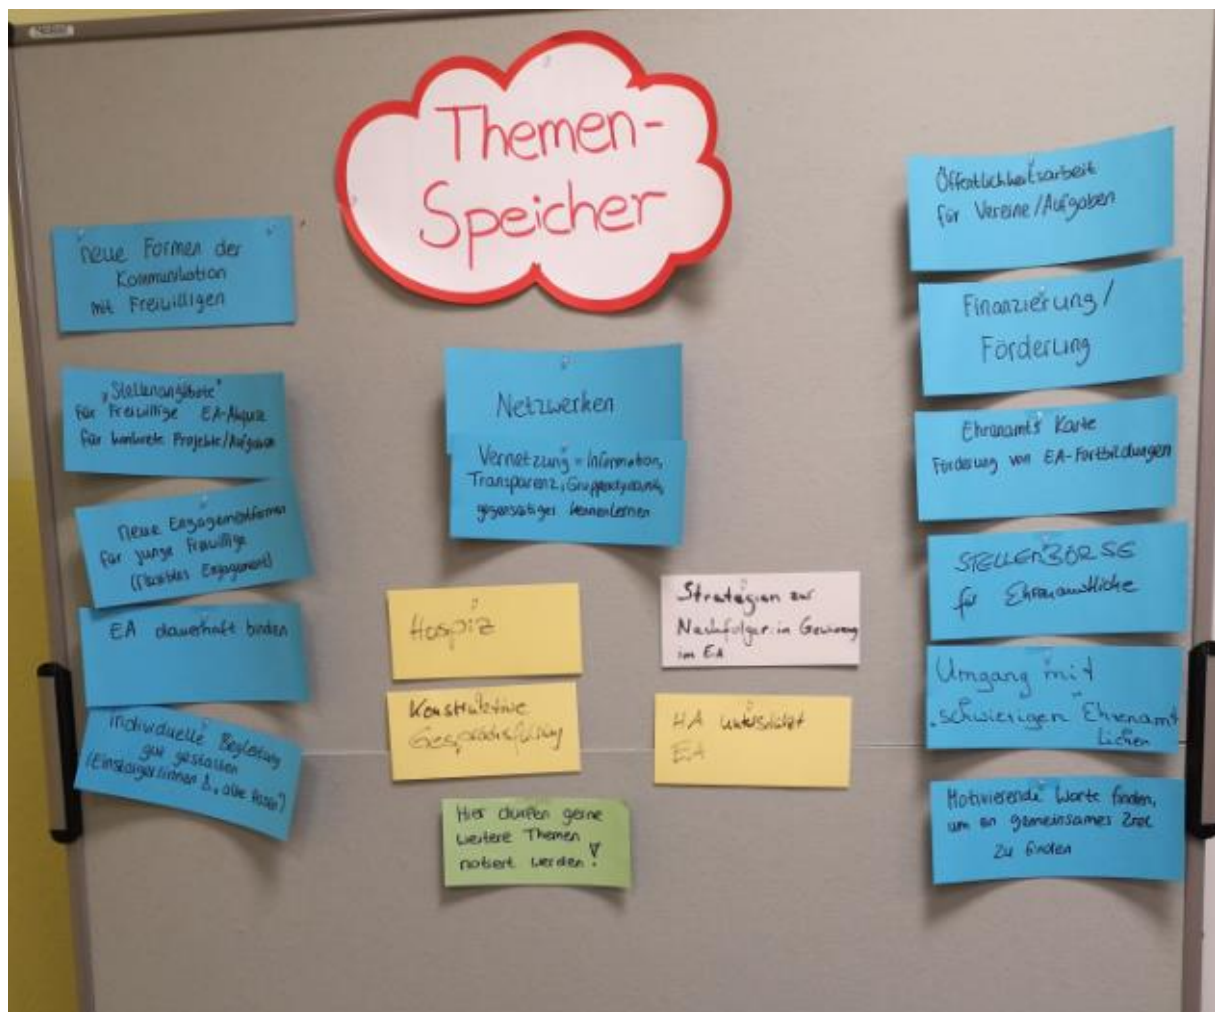 Themen-
Speicher
neue Formen der
Kommunikation
mit Freiwilligen
„Stellenangebote"
für Freiwillige EA-Akquise
für konkrete Projekte/Aufgaben
neue Engagementformen
für junge Freiwillige
(flexibles Engagement)
EA dauerhaft binden
individuelle Begleitung
gut gestalten
(Einsteiger/innen & „alte Hasen")
Netzwerken
Vernetzung = Information,
Transparenz, Gruppendynamik,
gegenseitiges kennenlernen
Hospiz
Konstruktive
Gesprächsführung
Strategien zur
Nachfolger:in Gewinnung
im EA
HA unterstützt
EA
Hier dürfen gerne
weitere Themen
notiert werden!
Öffentlichkeitsarbeit
für Vereine/Aufgaben
Finanzierung/
Förderung
Ehrenamts Karte
Förderung von EA-Fortbildungen
STELLENBÖRSE
für Ehrenamtliche
Umgang mit
„schwierigen" Ehrenamt
lichen
Motivierende Worte finden,
um ein gemeinsames Ziel
zu finden